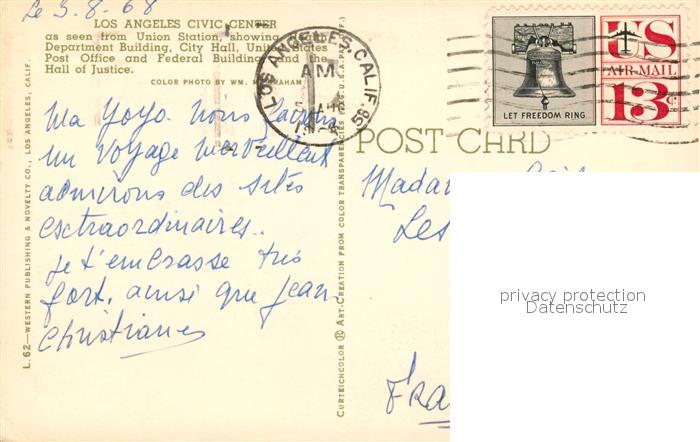 Le 3.8.68
LOS ANGELES CIVIC CENTER
as seen from Union Station, showing
Department Building, City Hall, United States
Post Office and Federal Building and the
Hall of Justice.
COLOR PHOTO BY WM.
Ma Yoyo. Nous faisons
un voyage merveilleux
admirons des sites
extraordinaires..
Je t'embrasse très
fort, ainsi que Jean-
Christian
L.62—WESTERN PUBLISHING & NOVELTY CO., LOS ANGELES, CALIF.
CURTEICHCOLOR ® ART-CREATION FROM COLOR TRANSPARENCIES
LOS ANGELES, CALIF
AM
LET FREEDOM RING
US
AIR MAIL
13¢
POST CARD
Madame
Les
privacy protection
Datenschutz